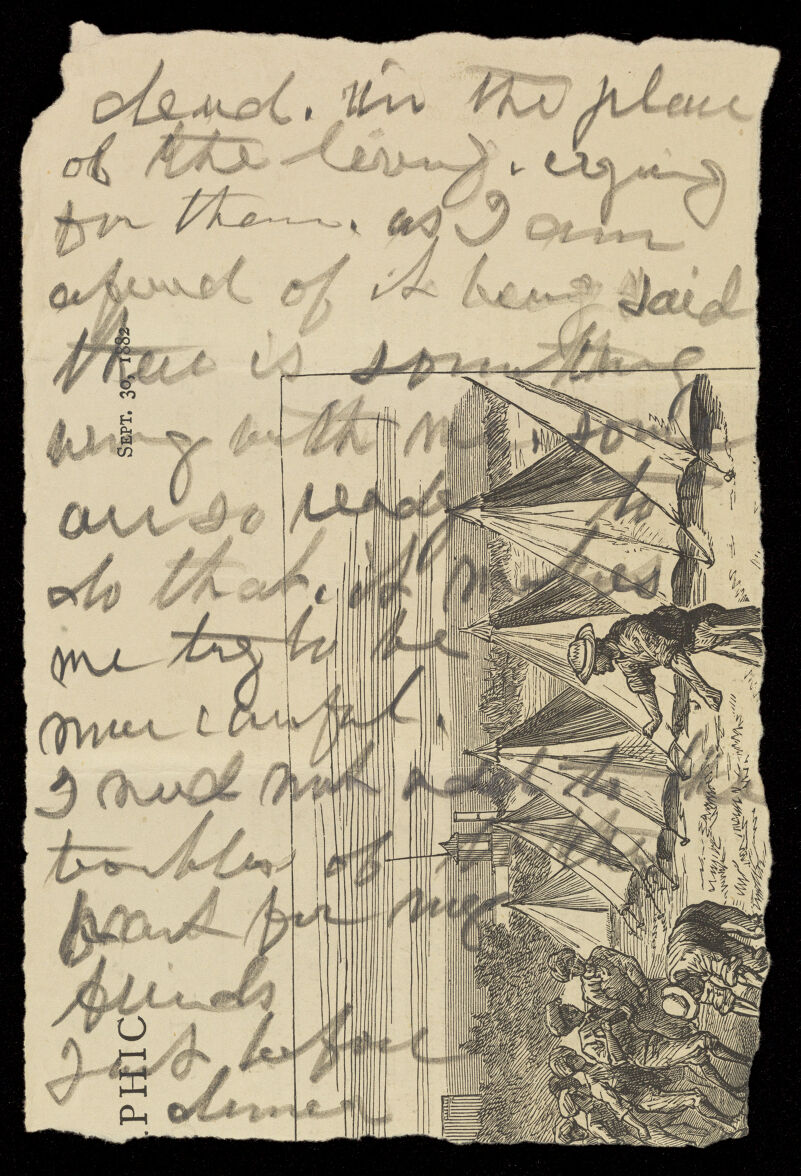 dead. In the place
of the living. crying
for them. as I am
afraid of it being said
there is something
wrong with me. some
are so ready to
do that. it makes
me try to be
more careful.
I need not add to the
troubles of the
past for my
friends
Just before
dinner
SEPT. 30, 1882
PHIC